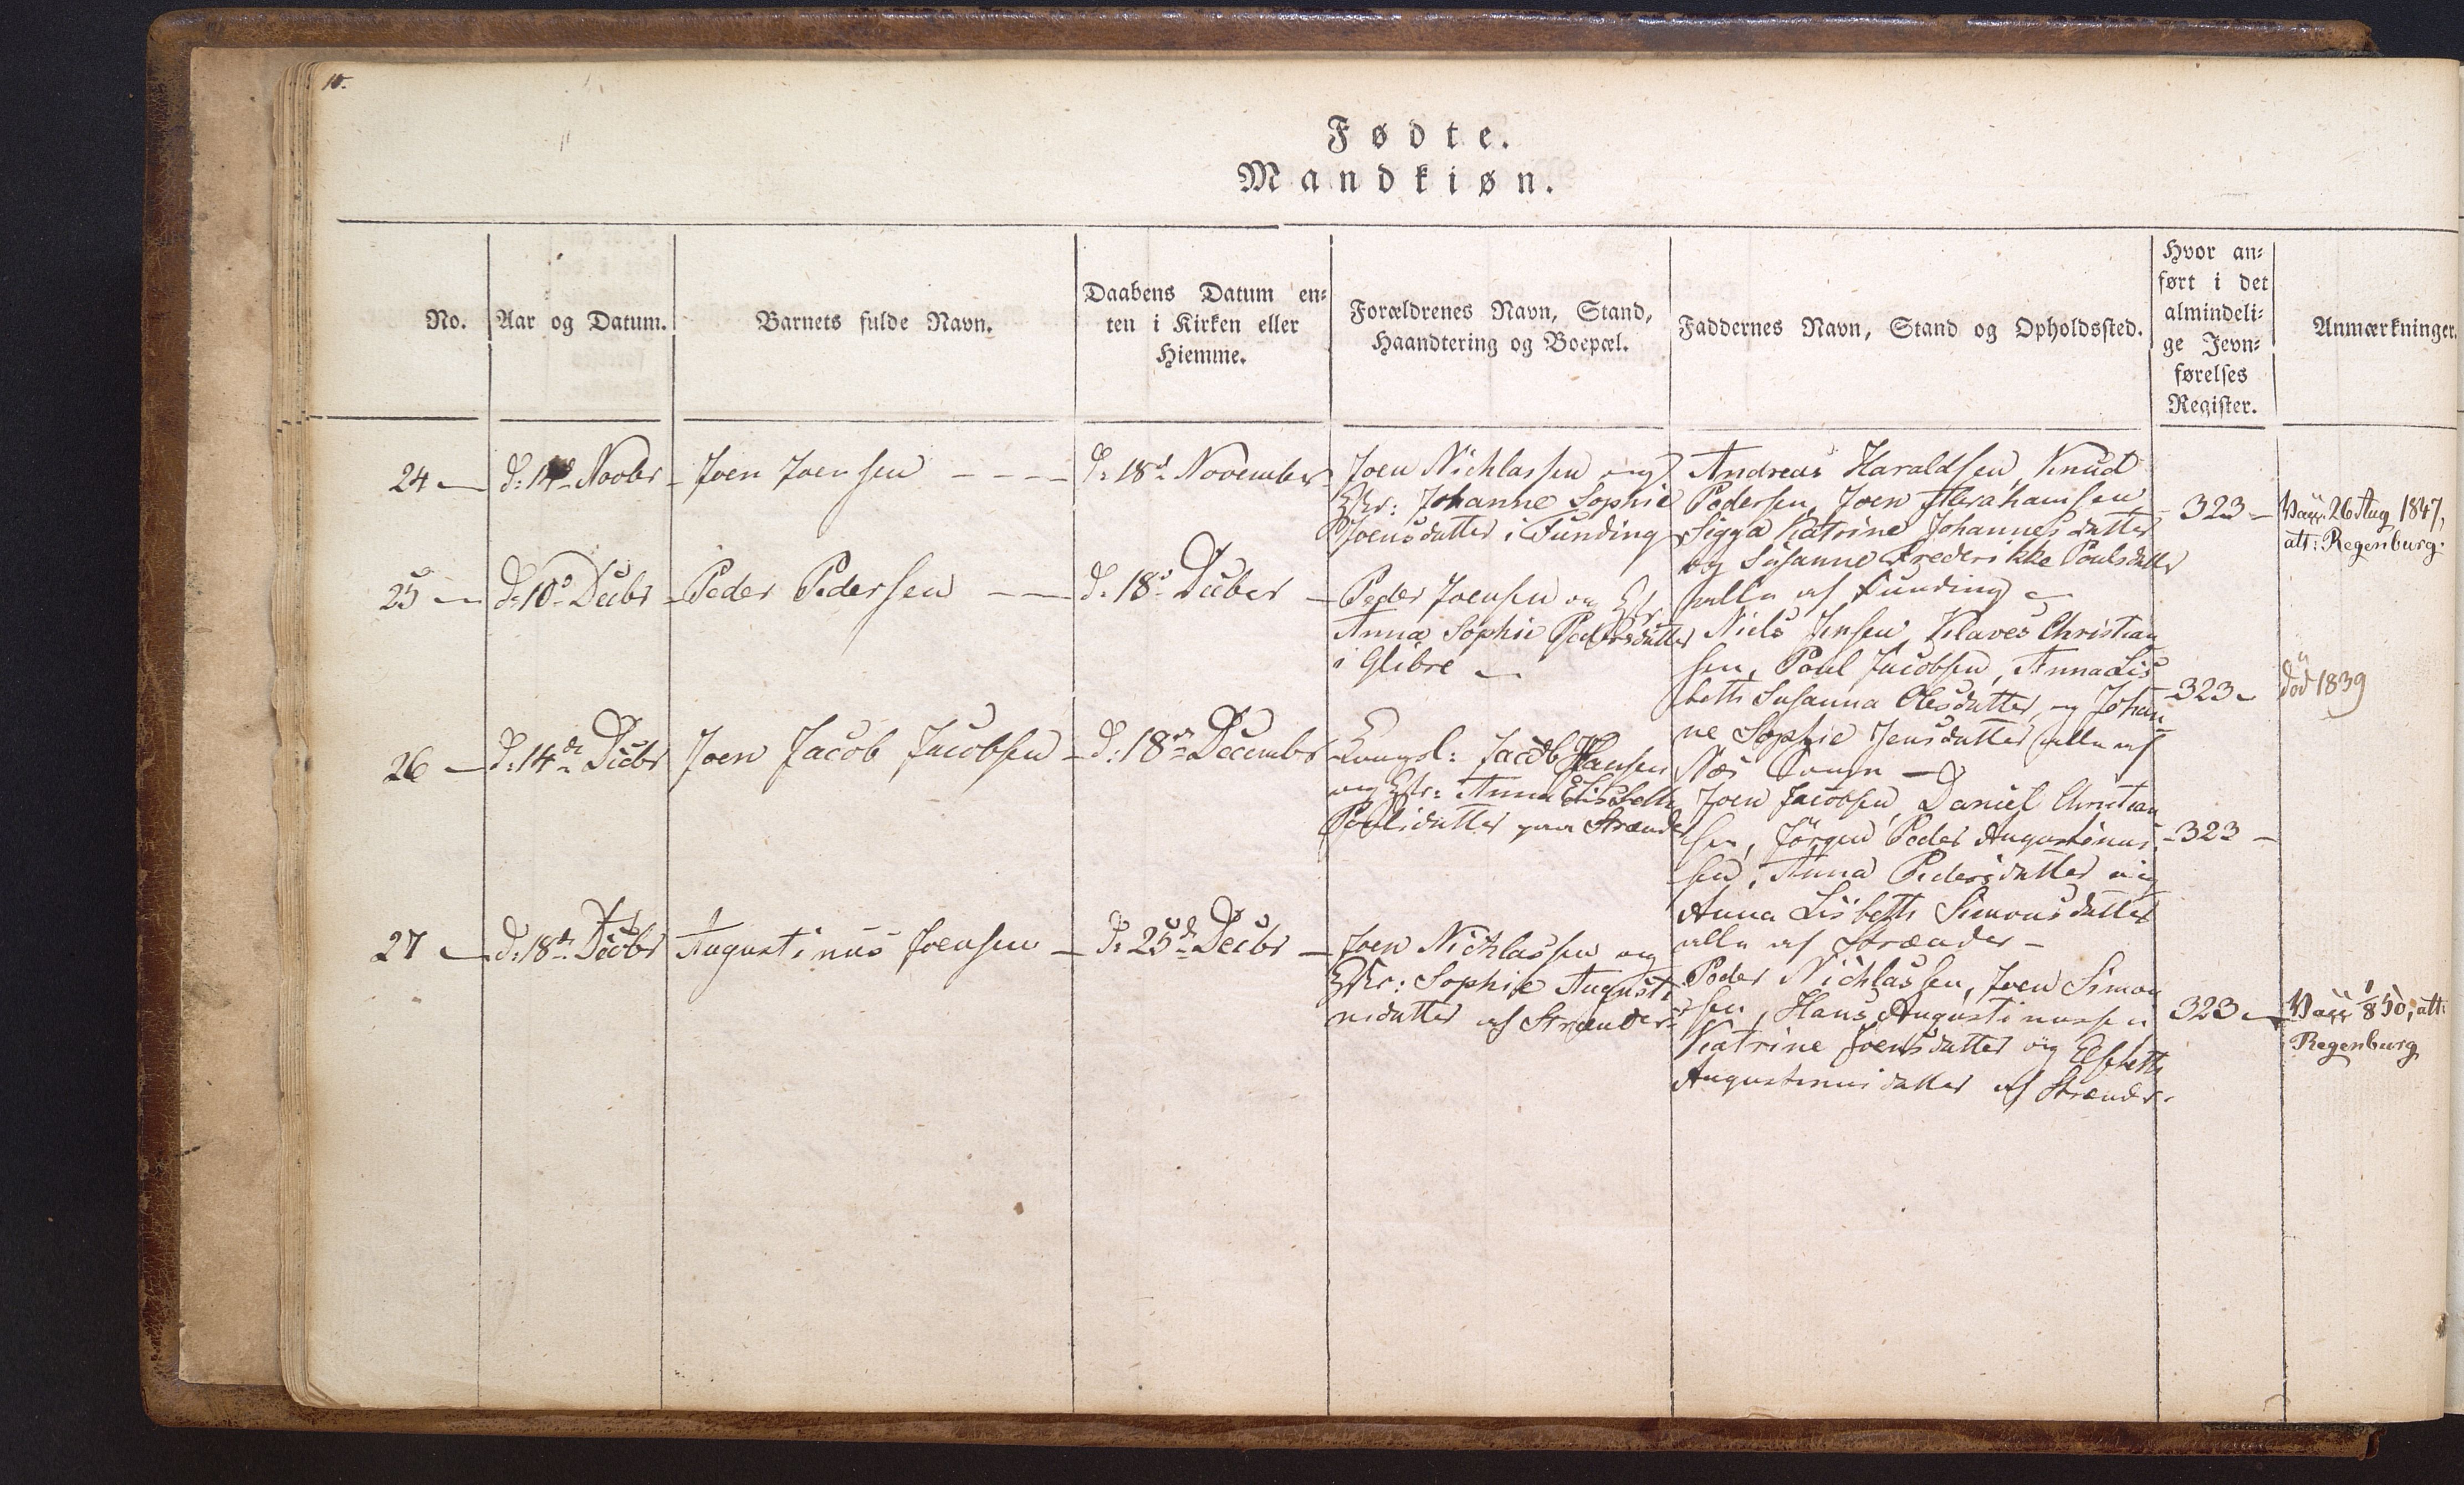 10.
Fødte.
Mandkiøn.
No.
Aar og Datum.
Barnets fulde Navn.
Daabens Datum en-
ten i Kirken eller
Hiemme.
Forældrenes Navn, Stand,
Haandtering og Boepæl.
Faddernes Navn, Stand og Opholdssted.
Hvor an-
ført i det
almindeli-
ge Jevn-
førelses
Register.
Anmærkninger.
24 — d: Novbr - Joen Joensen - - - -
d: 18d November
Joen Nichlassen og
Hstr: Johanne Sophie
Joensdatter i Funding
Andreas Haraldsen, Knud
Pedersen, Joen Abrahamsen
Sigga Katrine Johannesdatter
og Susanne Frederikke Poulsdatter
alle af Funding
- 323 -
Vacc. 26 Aug 1847,
att: Regenburg.
25 — d: 10d Decbr - Peder Pedersen — —
d: 18d Decber —
Peder Joensen og Hstr
Anna Sophie Pedersdatter
i Glibre —
Niels Jensen, Klaves Christian
sen, Poul Jacobsen, Anna Lis
beth Susanna Olesdatter, og Johan
ne Sophie Jensdatter alle af
Næs
- 323 -
död 1839
26 — d: 14de Decbr Joen Jacob Jacobsen —
d: 18de Decembr
Kongsb: Jacob Hansen
og Hstr: Anna Elisbeth
Poulsdatter paa Strænder
Joen Jacobsen, Daniel Christian
sen, Jörgen Peder Augustinus
sen, Anna Pedersdatter og
Anna Lisbeth Simonsdatter
alle af Strænder —
- 323 -
27 — d: 18de Decbr Augustinus Joensen —
d: 25de Decbr —
Joen Nichlassen og
Hstr: Sophie Augusti
nsdatter af Strænder
Peder Nichlassen, Joen Simon
sen, Hans Augustinussen
Katrine Joensdatter og Elsbeth
Augustinusdatter af Strænder.
323 -
Vacc 1/8 50, att:
Regenburg